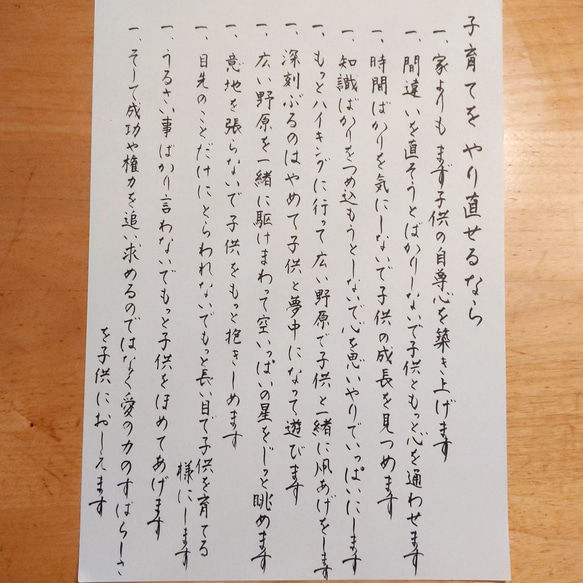 子育てをやり直せるなら
一、家よりもまず子供の自尊心を築き上げます
一、間違いを直そうとばかりしないで子供ともっと心を通わせます
一、時間ばかりを気にしないで子供の成長を見つめます
一、知識ばかりをつめ込もうとしないで心を思いやりでいっぱいにします
一、もっとハイキングに行って広い野原で子供と一緒に凧あげをします
一、深刻ぶるのはやめて子供と夢中になって遊びます
一、広い野原を一緒に駆けまわって空いっぱいの星をじっと眺めます
一、意地を張らないで子供をもっと抱きしめます
一、目先のことだけにとらわれないでもっと長い目で子供を育てる
様にします
一、うるさい事ばかり言わないでもっと子供をほめてあげます
一、そして成功や権力を追い求めるのではなく愛の力のすばらしさ
を子供におしえます